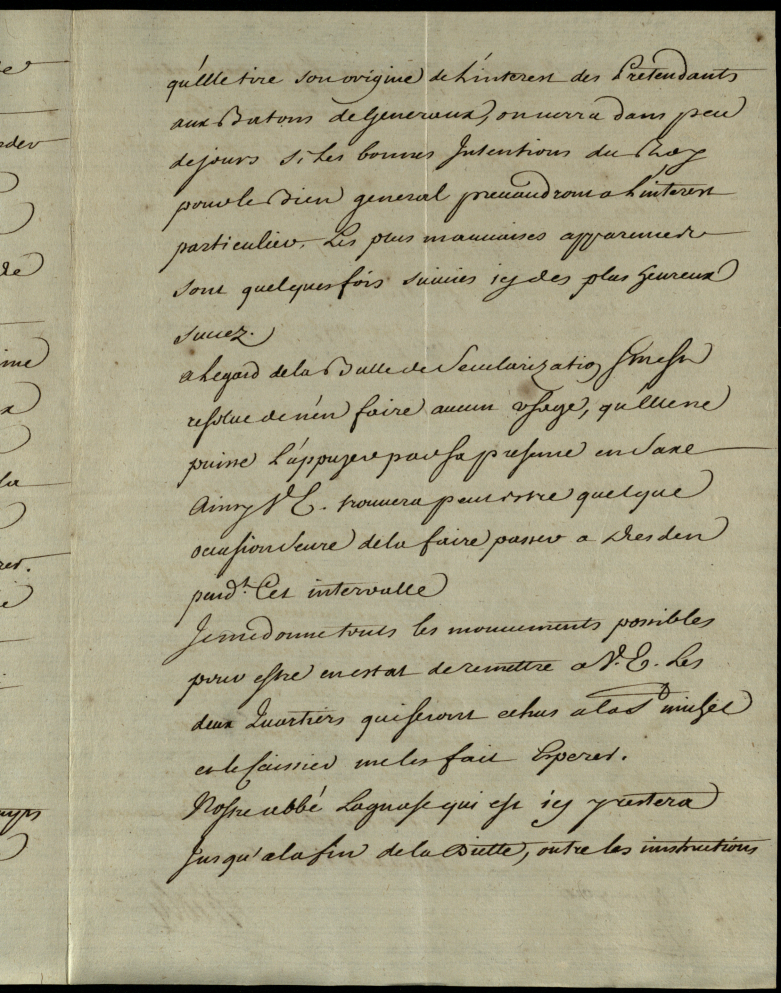 qu'Elle tire son origine de L'interest des Pretendants
aux Batons de Generaux, on verra dans peu
de jours si Les bonnes Intentions du Roy
pour le Bien general prevaudront a L'interest
particulier. Les plus mauvaises apparences
sont quelques fois suivies icy des plus heureux
succez.
a Legard de la Bulle de Secularization S.M. est
resolue de n'en faire aucun usage, qu'Elle ne
puisse L'appuyer par sa presence en Saxe
Ainsy V.E. trouvera peut estre quelque
occasion seure de la faire passer a Dresden
pend.t Cet intervalle
Je me donne touts les mouvements possibles
pour estre en estat de remettre a V.E. Les
deux Quartiers qui seront echus a la St. Michel
et le Caissier me les fait Esperer.
Nostre abbé Lagnasc qui est icy y restera
Jusqu'a la fin de la Diette, outre les instructions
de
la